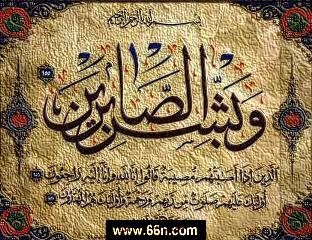 بسم الله الرحمن الرحيم
وبشر الصابرين
١٥٥
الذين إذا أصابتهم مصيبة قالوا إنا لله وإنا إليه راجعون
أولئك عليهم صلوات من ربهم ورحمة وأولئك هم المهتدون
www.66n.com